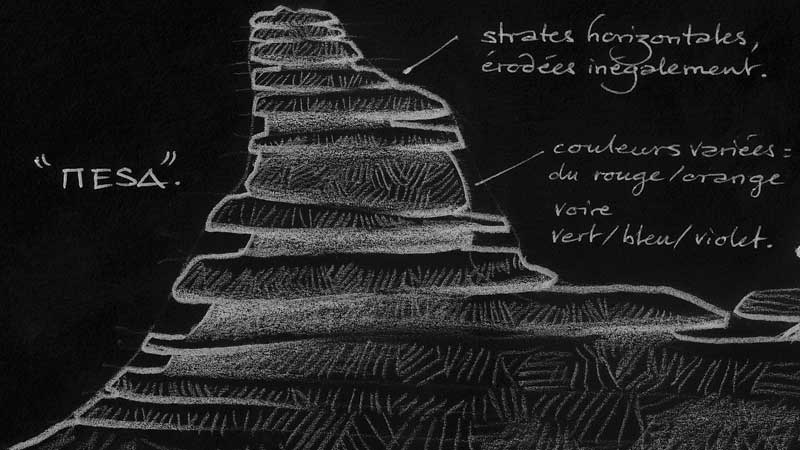 strates horizontales,
érodées inégalement.
couleurs variées :
du rouge/orange
voire
vert/bleu/violet.
"MESA".